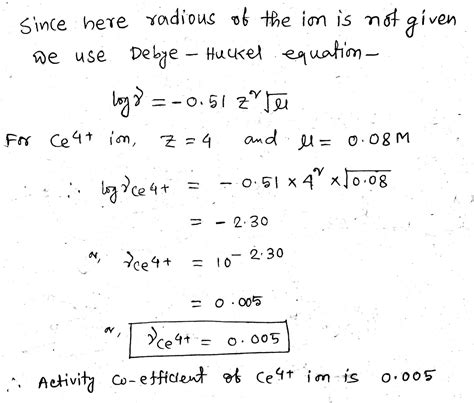 Since here radious of the ion is not given
we use Debye - Huckel equation -
log γ = -0.51 z² √μ
For Ce⁴⁺ ion, z = 4 and μ = 0.08M
∴ log γ Ce 4+ = - 0.51 × 4² × √0.08
= - 2.30
or, γ Ce 4+ = 10^- 2.30
= 0.005
or, γ Ce 4+ = 0.005
∴ Activity Co-efficient of Ce⁴⁺ ion is 0.005